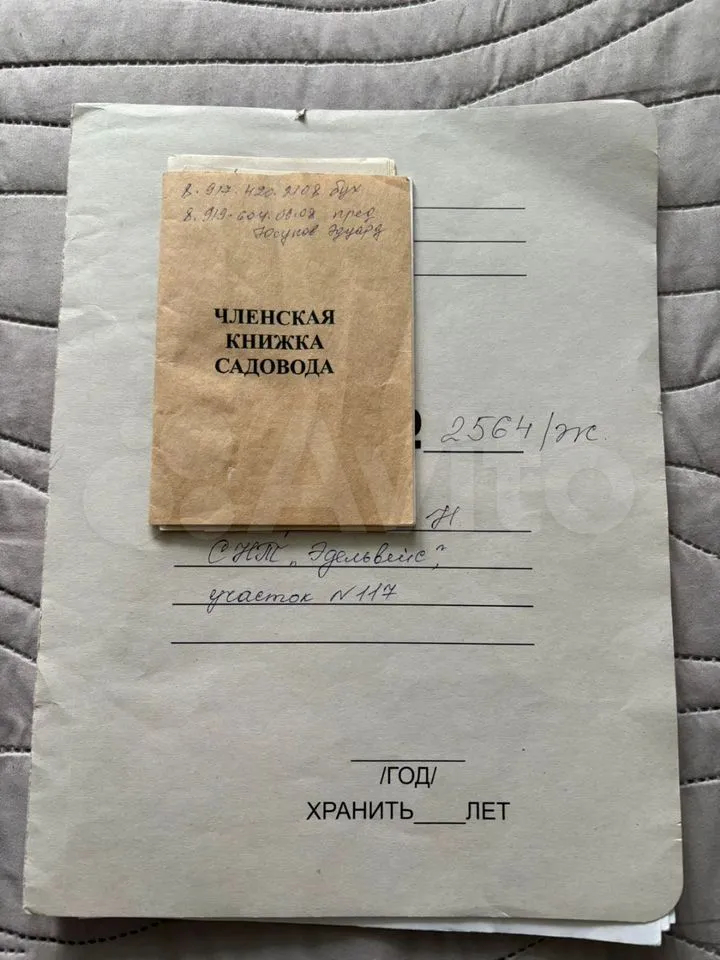 8.917.420.2108 бух
8.919-604.08.08 пред
Юсупов Эдуард
ЧЛЕНСКАЯ
КНИЖКА
САДОВОДА
2564/ж.
Н
СНТ „Эдельвейс"
участок N117
/ГОД/
ХРАНИТЬ____ЛЕТ
Avito